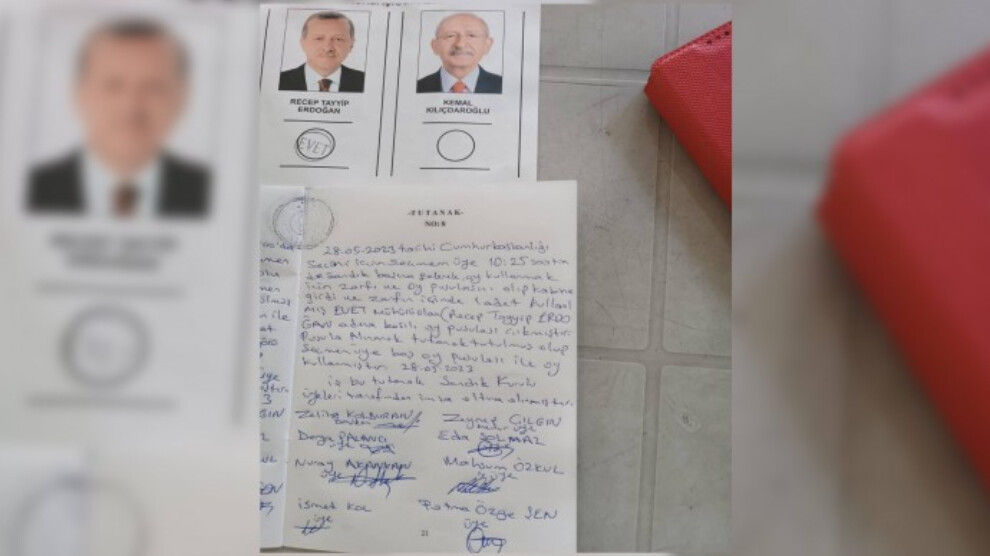 RECEP TAYYİP
ERDOĞAN
KEMAL
KILIÇDAROĞLU
EVET
-TUTANAK-
NO: 8
28-05-2023 tarihi Cumhurbaşkanlığı
Seçimi için Seçmen üye 10:25 saatin
de sandık başına gelerek, oy kullanmak
için zarfı ve oy pusulasını alıp kabine
girdi ve zarfın içinde 1 adet kullanıl
mış EVET mühürü olan (Recep Tayyip ERDO
ĞAN adına basılı oy pusulası çıkmıştır.
Pusula Alınarak tutanak tutulmuş olup
Seçmen üye boş oy pusulası ile oy
kullanmıştır. 28-05-2023
iş bu tutanak Sandık Kurulu
üyeleri tarafından imza altına alınmıştır.
Zeliha Zeynep ÇILGIN
Başkan üye
Derya Eda SOLMAZ
üye
Nuray Mahsum ÖZKUL
üye üye
ismet Kol Fatma Özge ŞEN
üye üye
21